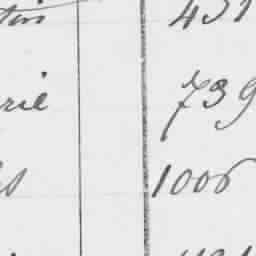 tin 451
rie 739
s 1006